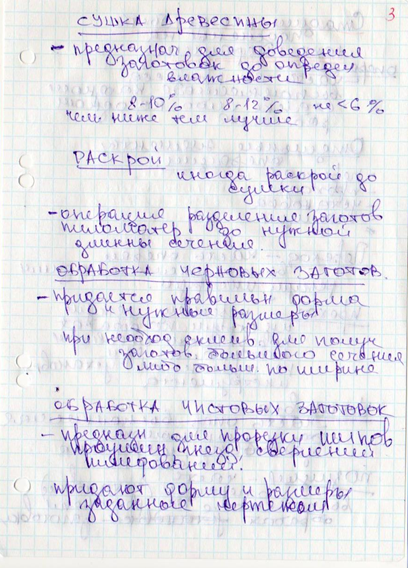 3
СУШКА ДРЕВЕСИНЫ
- предназнач для доведения
заготовок до определ
влажности
8-10%  8-12%  не <6%
чем ниже тем лучше
РАСКРОЙ
иногда раскрой до
сушки
- операция разделение заготов
пиломатер до нужной
длинны сечение.
ОБРАБОТКА ЧЕРНОВЫХ ЗАГОТОВ.
- придается правильн форма
и нужные размеры
при необход склеив для получ
заготов. большого сечения
либо больш. по ширине
ОБРАБОТКА ЧИСТОВЫХ ЗАГОТОВОК
- предназн для прорезки шипов
проушин гнезд сверления
шлифования?.
придают форму и размеры
заданные чертежом